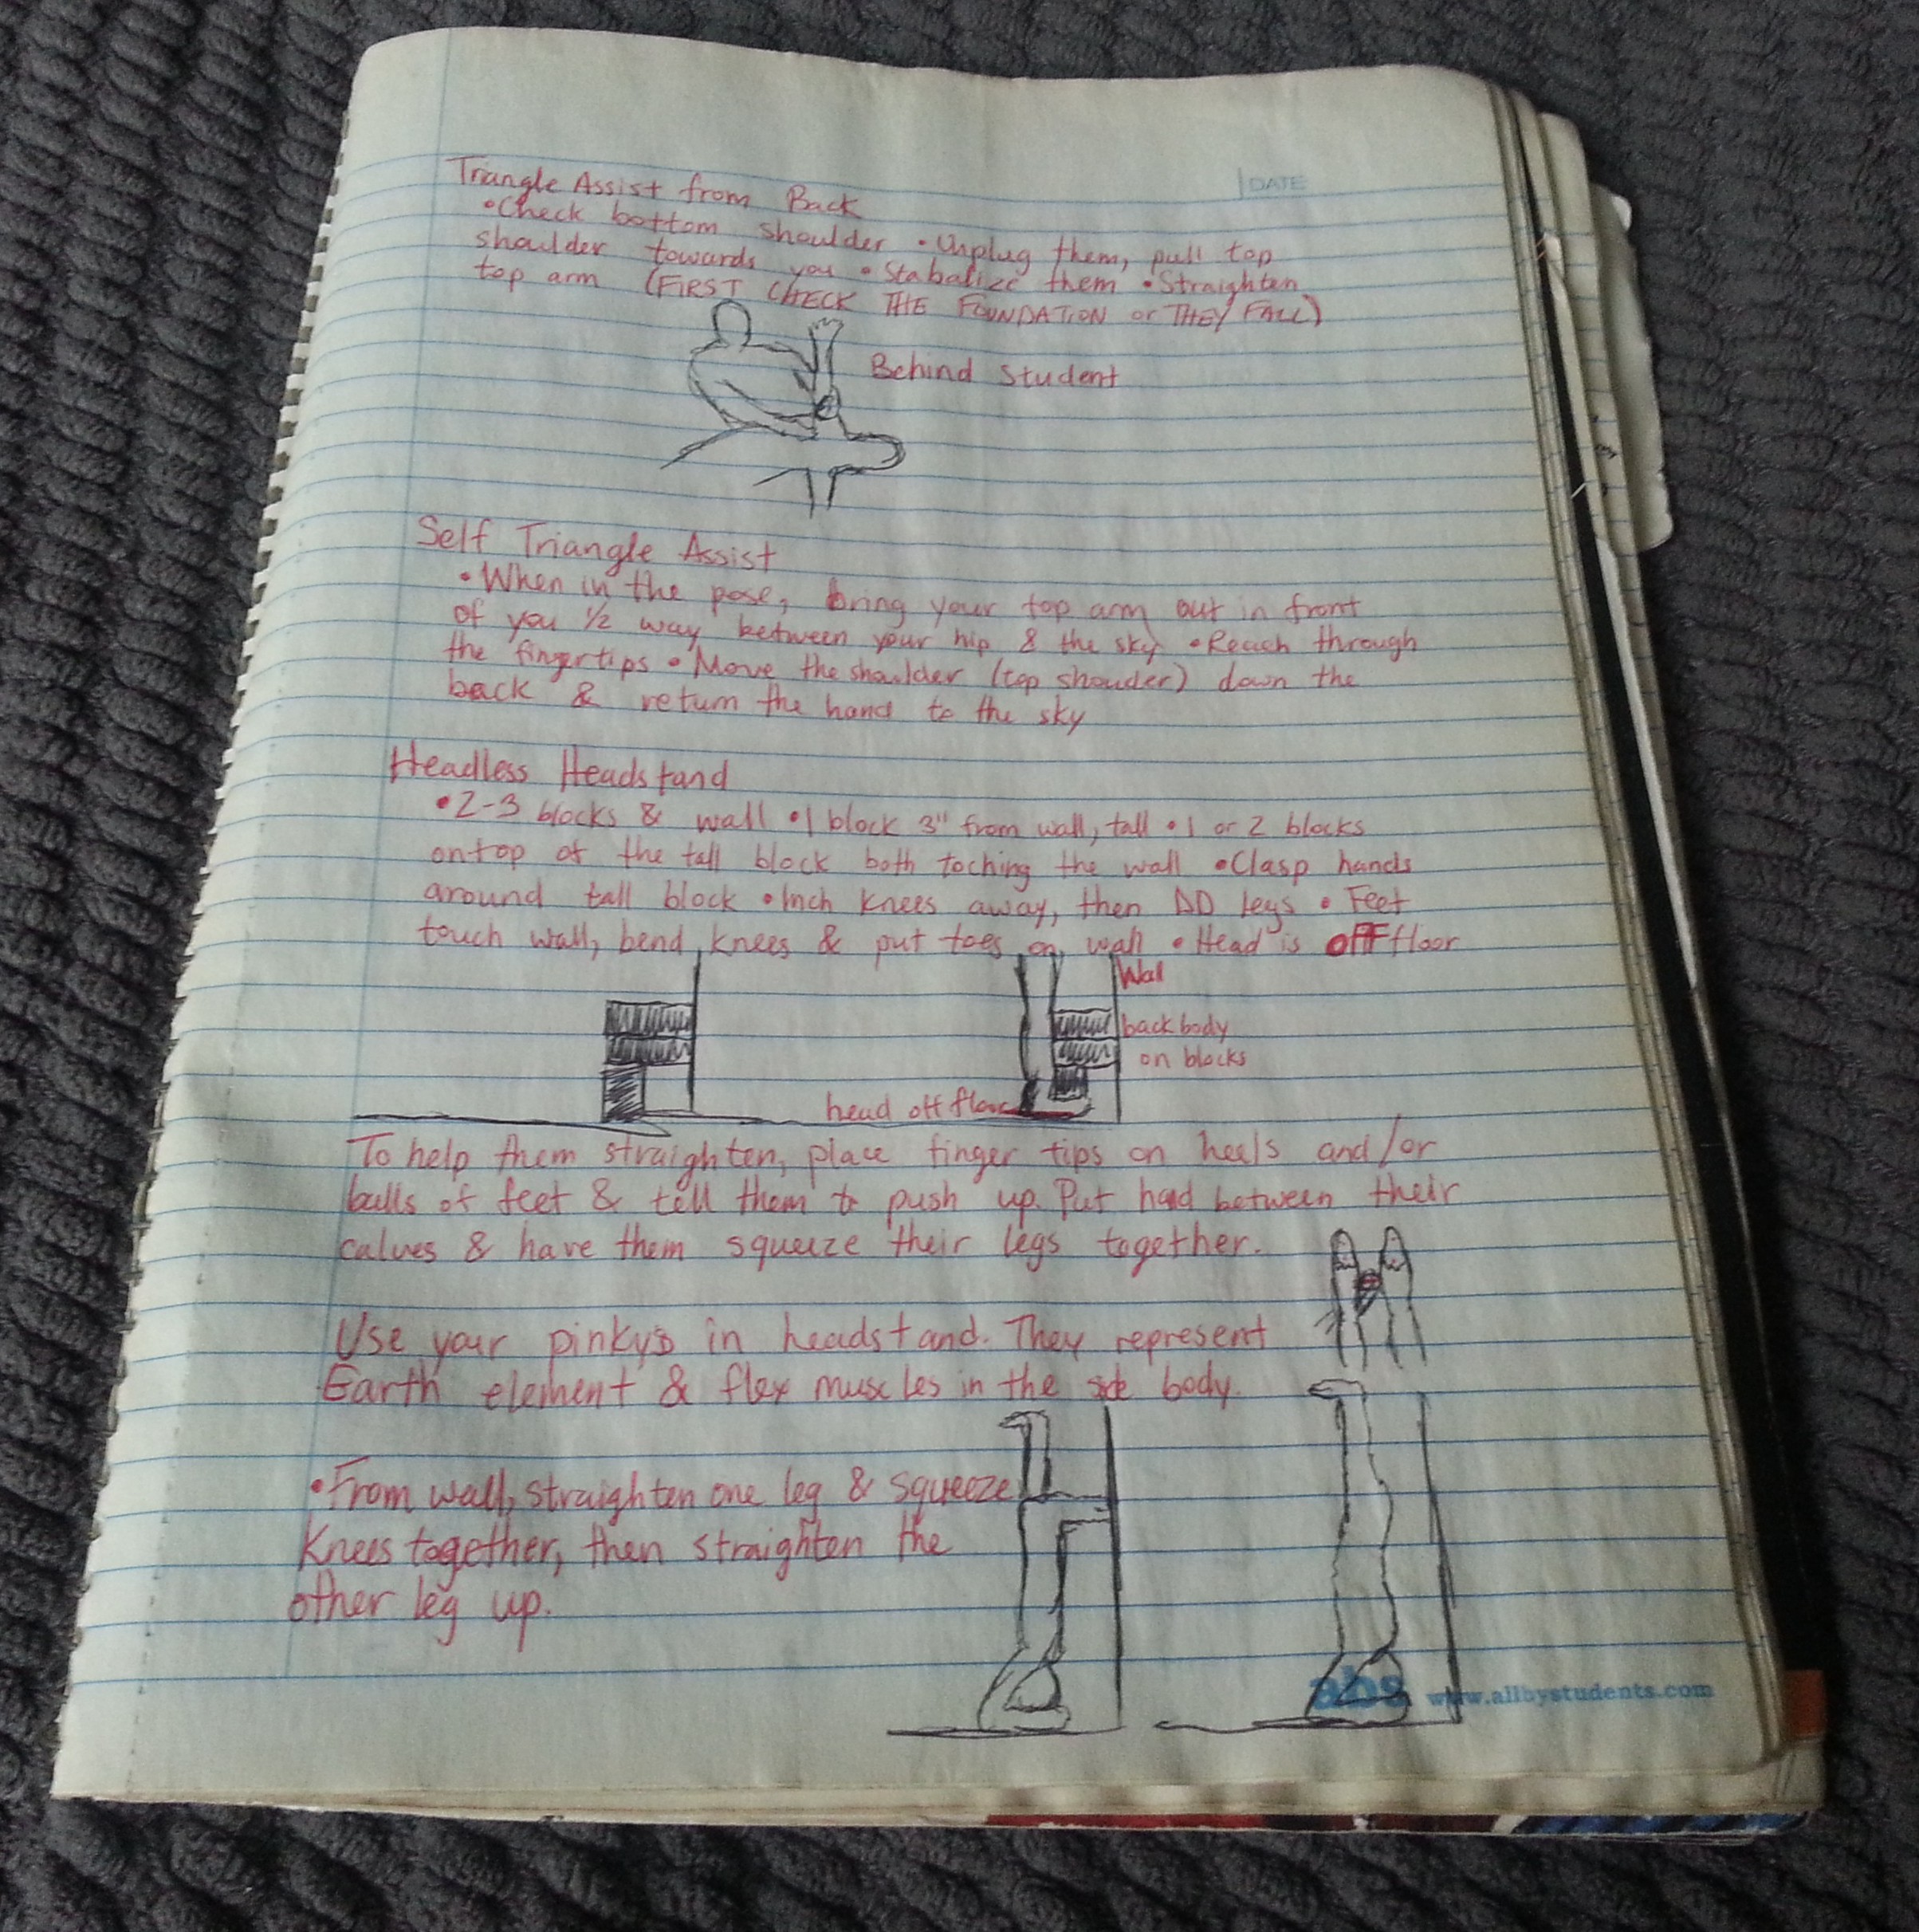 DATE
Triangle Assist from Back
•Check bottom shoulder •Unplug them, pull top
shoulder towards you •Stabalize them •Straighten
top arm (FIRST CHECK THE FOUNDATION or THEY FALL)
Behind Student
Self Triangle Assist
•When in the pose, bring your top arm out in front
of you 1/2 way between your hip & the sky •Reach through
the fingertips •Move the shoulder (top shouder) down the
back & return the hand to the sky
Headless Headstand
•2-3 blocks & wall •1 block 3" from wall, tall •1 or 2 blocks
ontop of the tall block both toching the wall •Clasp hands
around tall block •Inch knees away, then DD legs •Feet
touch wall, bend knees & put toes on wall •Head is off floor
Wall
back body
on blocks
head off floor
To help them straighten, place finger tips on heels and/or
balls of feet & tell them to push up. Put hand between their
calves & have them squeeze their legs together.
Use your pinkys in headstand. They represent
Earth element & flex muscles in the side body.
•From wall, straighten one leg & squeeze
Knees together, then straighten the
other leg up.
abs www.allbystudents.com